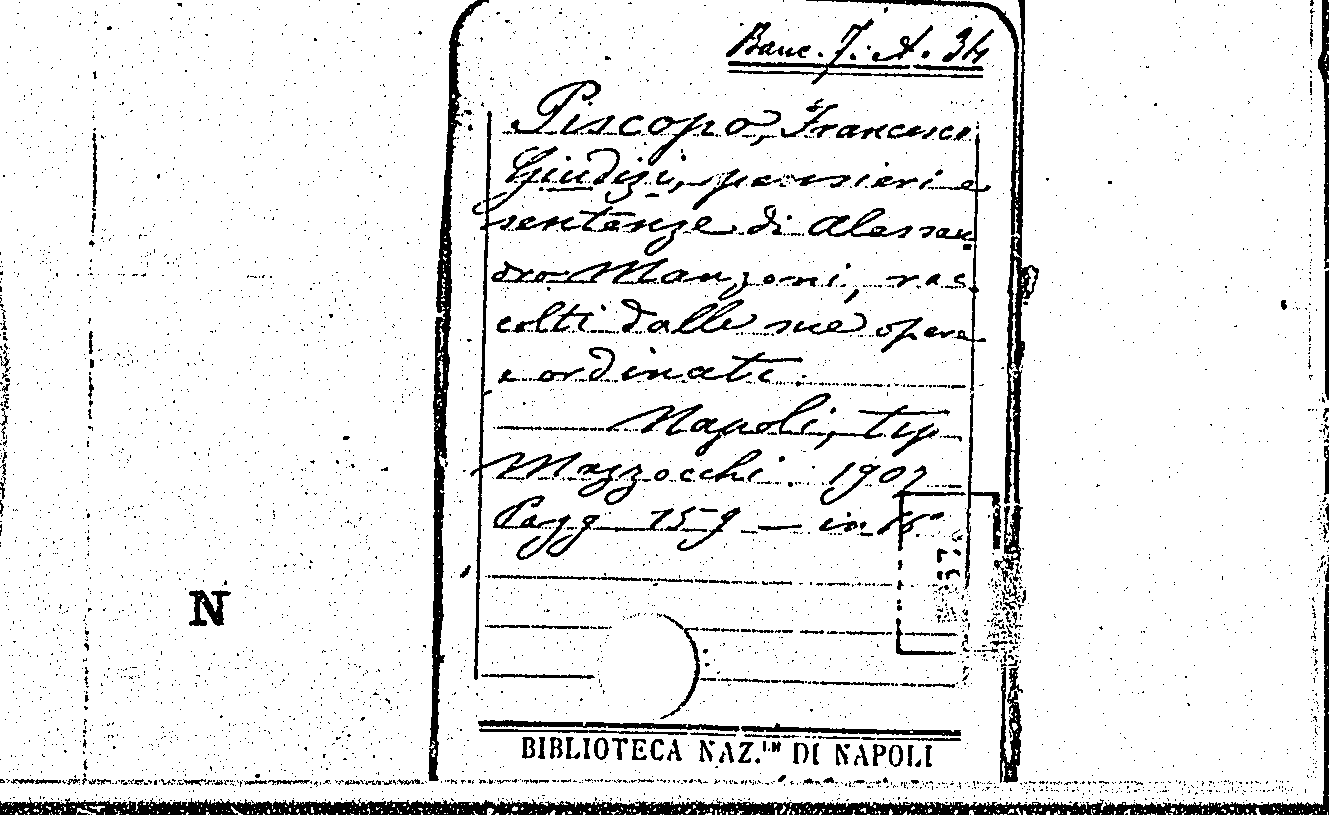 Banc. 7. A. 34
Piscopo, Francesco
Giudizi, pensieri e
sentenze di Alessan
dro Manzoni, rac
colti dalle sue opere
e ordinati.
Napoli, tip
Mazzocchi. 1907
Pagg 159 — in 16°
57
N
BIBLIOTECA NAZ.LE DI NAPOLI